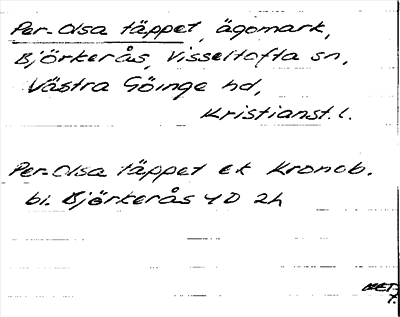 Per-Olsa täppet, ägomark,
Björkerås, Visseltofta sn,
Västra Göinge hd,
Kristianst. l.
Per-Olsa täppet ek Kronob.
bl. Björkerås 4D 2h